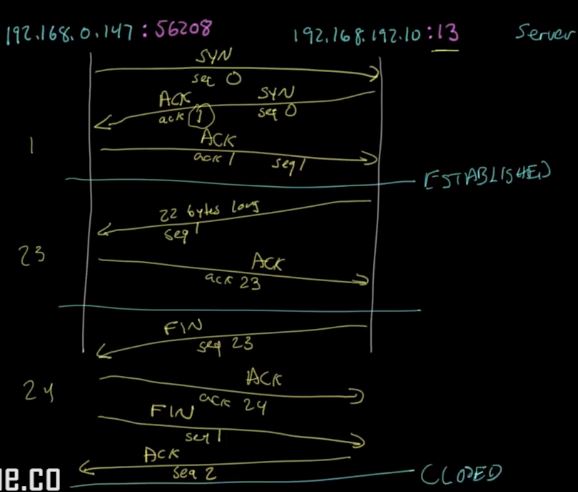 192.168.0.147:56208 192.168.192.10:13 Server
SYN
seq 0
ACK SYN
ack 1 seq 0
ACK
1
ack 1 seq 1
ESTABLISHED
22 bytes long
seq 1
23
ACK
ack 23
FIN
seq 23
ACK
24
ack 24
FIN
seq 1
ACK
seq 2
CLOSED
ne.co